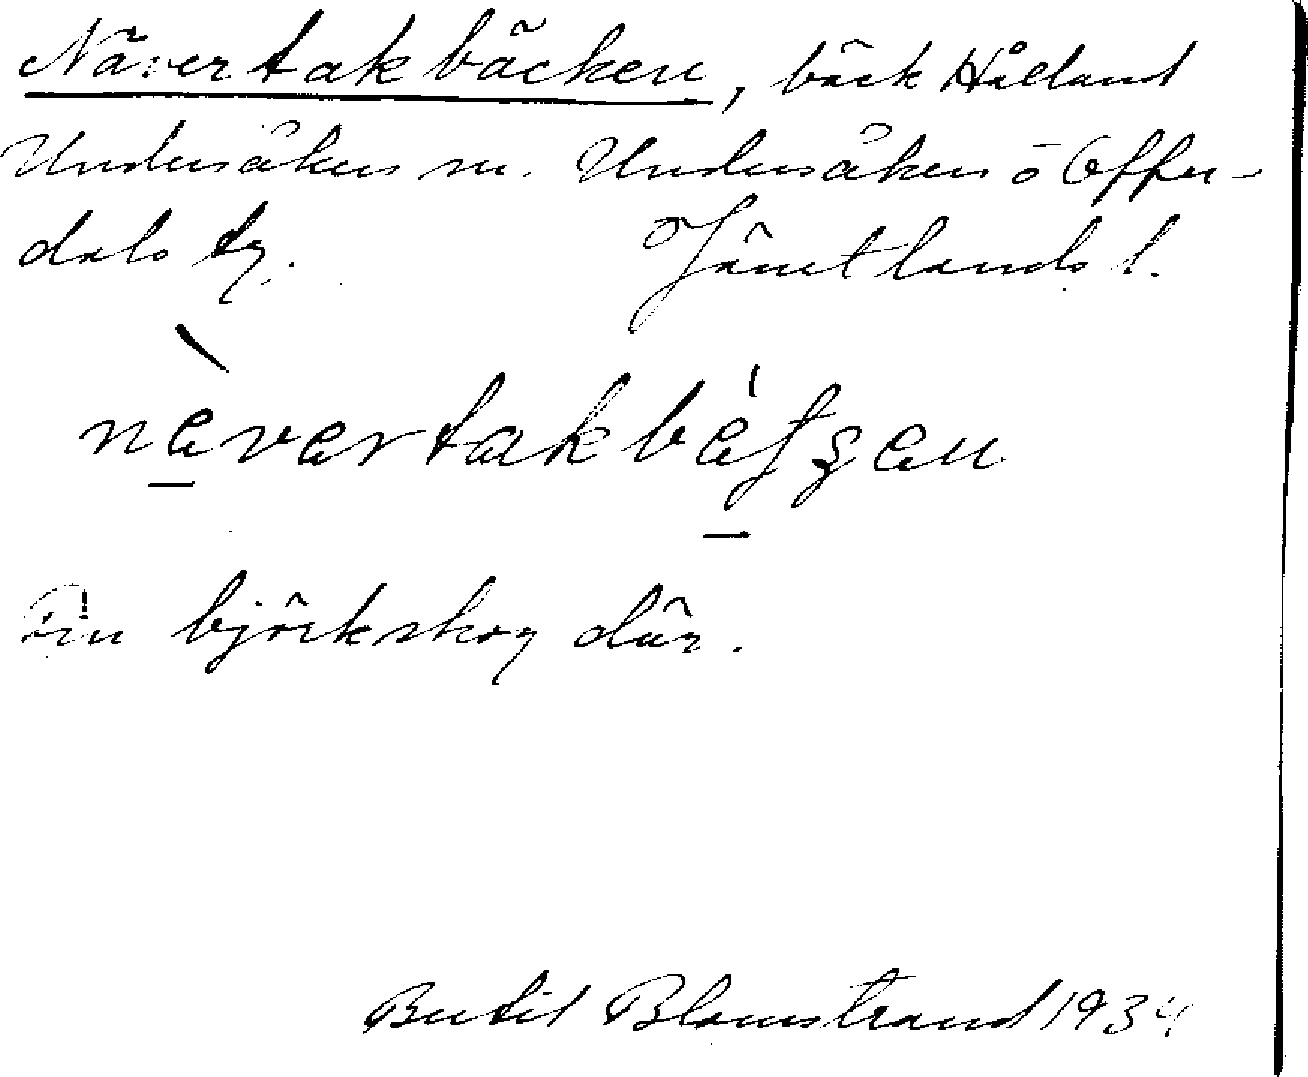 Nävertakbäcken, bäck Hålland
Undersåkers sn. Undersåkers o Offer-
dals tg. Jämtlands l.
Fin björkskog där.
Bertil Blomstrand 1934